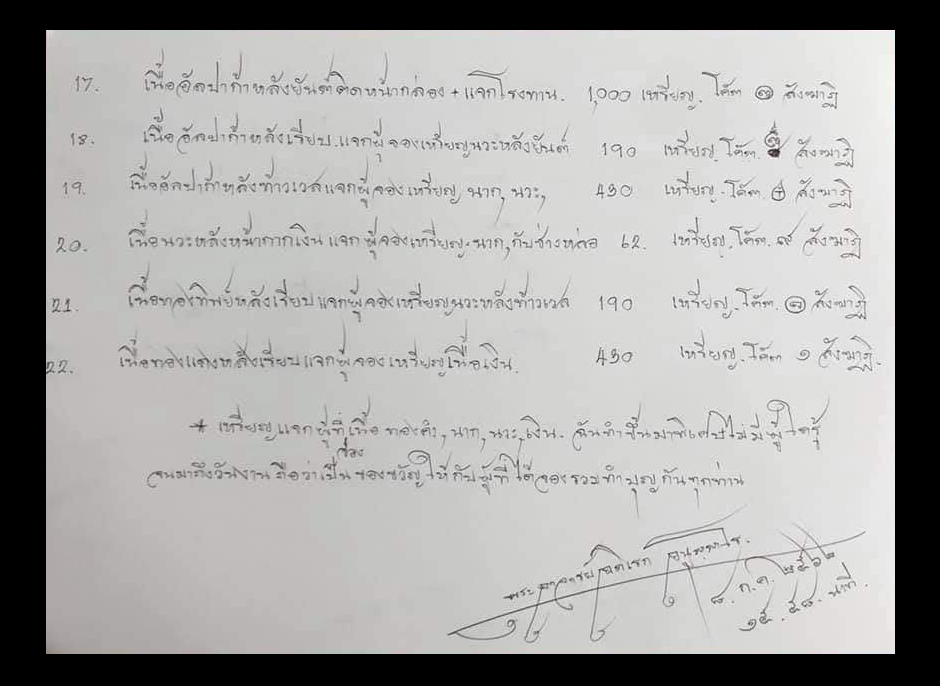 17. เนื้ออัลปาก้าหลังยันต์ติดหน้ากล่อง + แจกโรงทาน. 1,000 เหรียญ. โค๊ต ๑ สังฆาฏิ
18. เนื้ออัลปาก้าหลังเรียบ.แจกผู้จองเหรียญนวะหลังยันต์ 190 เหรียญ. โค๊ต. สังฆาฏิ
19. เนื้ออัลปาก้าหลังท้าวเวสแจกผู้จองเหรียญ, นาก, นวะ, 430 เหรียญ. โค๊ต. สังฆาฏิ
20. เนื้อนวะหลังหน้ากากเงิน แจกผู้จองเหรียญ.นาก, กับช่างหล่อ 62. เหรียญ. โค๊ต. ๙ สังฆาฏิ
21. เนื้อทองทิพย์หลังเรียบแจกผู้จองเหรียญนวะหลังท้าวเวส 190 เหรียญ. โค๊ต. ๑ สังฆาฏิ
22. เนื้อทองแดงหลังเรียบแจกผู้จองเหรียญเนื้อเงิน. 430 เหรียญ. โค๊ต ๑ สังฆาฏิ.
* เหรียญแจกผู้ที่จองเนื้อทองคำ, นาก, นวะ, เงิน. ฉันทำขึ้นมาพิเศษไม่มีผู้ใดรู้
จนมาถึงวันงานถือว่าเป็นของขวัญให้กับผู้ที่ได้จองรวมทำบุญกันทุกท่าน
พระอาจารย์
๘. ก.ค. ๒๕๖๒
๑๕. ๕๘. นาที.